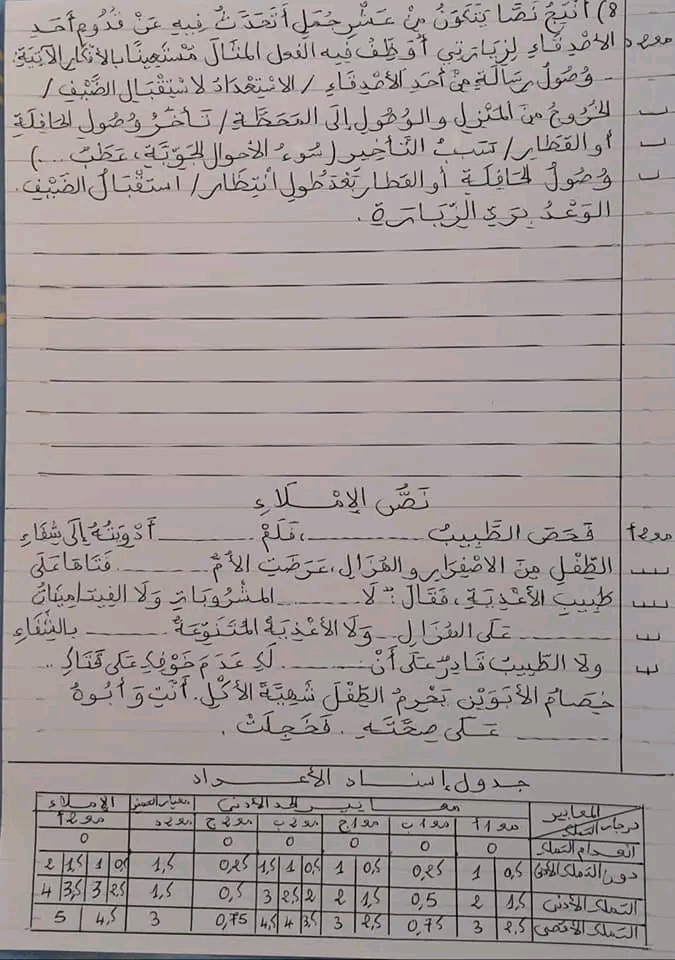 8) أُنْتِجُ نَصًّا يَتَكَوَّنُ مِنْ عَشْرِ جُمَلٍ أَتَحَدَّثُ فِيهِ عَنْ قُدُومِ أَحَدِ
الأَصْدِقَاءِ لِزِيَارَتِي أُوَظِّفُ فِيهِ الفعل المثَالَ مُسْتَعِينًا بِالأَفْكَارِ الآتِيَةِ:
- وُصُولُ رِسَالَةٍ مِنْ أَحَدِ الأَصْدِقَاءِ / الاسْتِعْدَادُ لِاسْتِقْبَالِ الضَّيْفِ /
الخُرُوجُ مِنَ المَنْزِلِ والوُصُولُ إلَى المَحَطَّةِ / تَأَخُّرُ وُصُولِ الحَافِلَةِ
أو القطَارِ / سَبَبُ التَّأخِيرِ (سُوءُ الأحوالِ الجَوِّيَّةِ، عَطَبٌ ...)
وُصُولُ الحَافِلَةِ أو القطار بَعْدَ طُولِ انْتِظَارٍ / اسْتِقْبَالُ الضَّيْفِ.
الوَعْدُ بِرَدِّ الزِّيَارَةِ.
نَصُّ الإِمْلَاءِ
فَحَصَ الطَّبِيبُ ........، فَلَمْ ........ أَدْوِيَتُهُ إِلَى شِفَاءِ
الطِّفْلِ مِنَ الاصْفِرَارِ والهُزَالِ، عَرَضَتِ الأُمُّ ........ فَتَاهَا عَلَى
طَبِيبِ الأَغْذِيَةِ، فَقَالَ: "لَا ........ المَشْرُوبَاتِ وَلَا الفِيتَامِينَاتُ
........ عَلَى الهُزَالِ وَلَا الأَغْذِيَةُ المُتَنَوِّعَةُ ........ بِالشِّفَاءِ
ولا الطَّبِيبُ قَادِرٌ عَلَى أَنْ ........ لَكِ عَدَمَ خَوْفِكِ عَلَى فَتَاكِ..
خِصَامُ الأَبَوَيْنِ يَحْرِمُ الطِّفْلَ شَهِيَّةَ الأَكْلِ. أَنْتِ وَأَبُوهُ
........ عَلَى صِحَّتِهِ. فَخَجِلَتْ.
جدول إسناد الأعداد
المعايير درجات التملك معايير الحد الأدنى معيار التميز الإملاء
مع 1أ مع 1ب مع 1ج مع 2ب مع 2ج مع 2د مع 2أ
انعدام التملك 0 0 0 0 0 0
دون التملك الأدنى 0,5 1 0,25 0,5 1 0,5 1 1,5 0,25 1,5 0,5 1 1,5 2
التملك الأدنى 1,5 2 0,5 1,5 2 2 2,5 3 0,5 1,5 2,5 3 3,5 4
التملك الأقصى 2,5 3 0,75 2,5 3 3,5 4 4,5 0,75 3 4,5 5